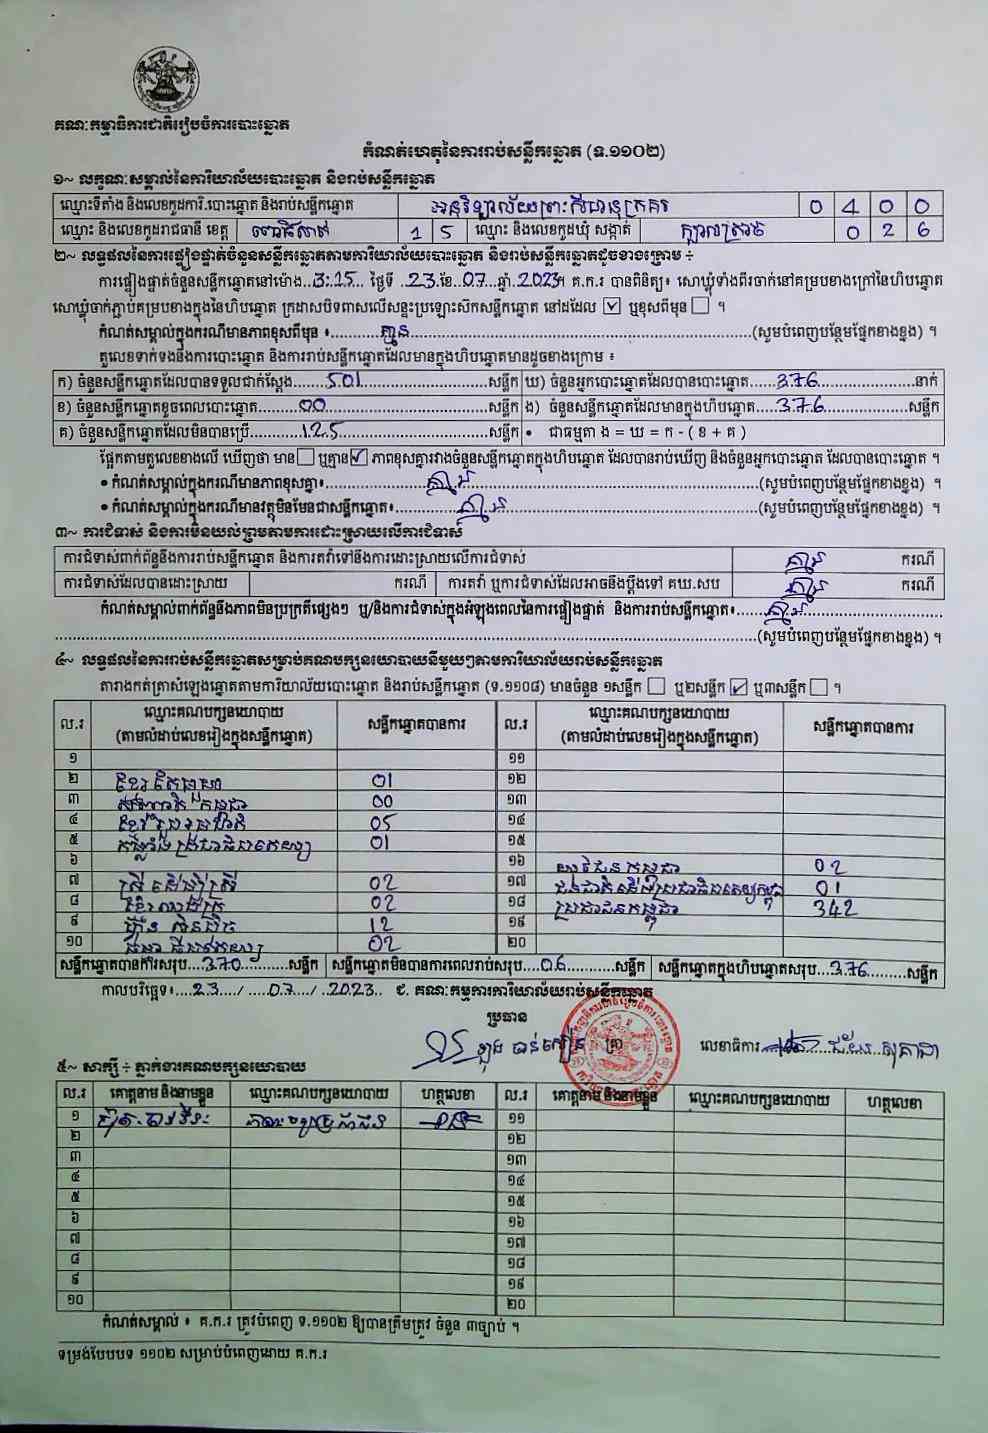 គណៈកម្មាធិការជាតិរៀបចំការបោះឆ្នោត
កំណត់ហេតុនៃការរាប់សន្លឹកឆ្នោត (ទ.១១០២)
១~ លក្ខណៈសម្គាល់នៃការិយាល័យបោះឆ្នោត និងរាប់សន្លឹកឆ្នោត
ឈ្មោះទីតាំង និងលេខកូដការិ.បោះឆ្នោត និងរាប់សន្លឹកឆ្នោត អនុវិទ្យាល័យព្រះសីហនុក្រគរ 0 4 0 0
ឈ្មោះ និងលេខកូដរាជធានី ខេត្ត ពោធិ៍សាត់ 1 5 ឈ្មោះ និងលេខកូដឃុំ សង្កាត់ ក្បាលត្រាច 0 2 6
២~ លទ្ធផលនៃការផ្ទៀងផ្ទាត់ចំនួនសន្លឹកឆ្នោតតាមការិយាល័យបោះឆ្នោត និងរាប់សន្លឹកឆ្នោតដូចខាងក្រោម ÷
ការផ្ទៀងផ្ទាត់ចំនួនសន្លឹកឆ្នោតនៅម៉ោង..3:15.. ថ្ងៃទី ..23..ខែ..07...ឆ្នាំ..2023។ គ.ក.រ បានពិនិត្យ៖ សោឃ្លុំទាំងពីរចាក់នៅគម្របខាងក្រៅនៃហិបឆ្នោត
សោឃ្លុំចាក់ភ្ជាប់គម្របខាងក្នុងនៃហិបឆ្នោត ក្រដាសបិទពាសលើសន្ទះប្រឡោះសិកសន្លឹកឆ្នោត នៅដដែល ☑ ឬខុសពីមុន ☐ ។
កំណត់សម្គាល់ក្នុងករណីមានភាពខុសពីមុន ៖........គ្មាន........(សូមបំពេញបន្ថែមផ្នែកខាងខ្នង) ។
តួលេខទាក់ទងនឹងការបោះឆ្នោត និងការរាប់សន្លឹកឆ្នោតដែលមានក្នុងហិបឆ្នោតមានដូចខាងក្រោម ៖
ក) ចំនួនសន្លឹកឆ្នោតដែលបានទទួលជាក់ស្តែង......501........សន្លឹក ឃ) ចំនួនអ្នកបោះឆ្នោតដែលបានបោះឆ្នោត......376........នាក់
ខ) ចំនួនសន្លឹកឆ្នោតខូចពេលបោះឆ្នោត........00........សន្លឹក ង) ចំនួនសន្លឹកឆ្នោតដែលមានក្នុងហិបឆ្នោត....376........សន្លឹក
គ) ចំនួនសន្លឹកឆ្នោតដែលមិនបានប្រើ........125........សន្លឹក • ជាធម្មតា ង = ឃ = ក - ( ខ + គ )
ផ្អែកតាមតួលេខខាងលើ ឃើញថា មាន ☐ ឬគ្មាន ☑ ភាពខុសគ្នារវាងចំនួនសន្លឹកឆ្នោតក្នុងហិបឆ្នោត ដែលបានរាប់ឃើញ និងចំនួនអ្នកបោះឆ្នោត ដែលបានបោះឆ្នោត ។
• កំណត់សម្គាល់ក្នុងករណីមានភាពខុសគ្នា៖........គ្មាន........(សូមបំពេញបន្ថែមផ្នែកខាងខ្នង) ។
• កំណត់សម្គាល់ក្នុងករណីមានវត្ថុមិនមែនជាសន្លឹកឆ្នោត៖........គ្មាន........(សូមបំពេញបន្ថែមផ្នែកខាងខ្នង) ។
៣~ ការជំទាស់ និងការមិនយល់ព្រមតាមការដោះស្រាយលើការជំទាស់
ការជំទាស់ពាក់ព័ន្ធនឹងការរាប់សន្លឹកឆ្នោត និងការតវ៉ាទៅនឹងការដោះស្រាយលើការជំទាស់ គ្មាន ករណី
ការជំទាស់ដែលបានដោះស្រាយ ករណី ការតវ៉ា ឬការជំទាស់ដែលអាចនឹងប្តឹងទៅ គឃ.សប គ្មាន ករណី
កំណត់សម្គាល់ពាក់ព័ន្ធនឹងភាពមិនប្រក្រតីផ្សេងៗ ឬ/និងការជំទាស់ក្នុងអំឡុងពេលនៃការផ្ទៀងផ្ទាត់ និងការរាប់សន្លឹកឆ្នោត៖......គ្មាន........
........(សូមបំពេញបន្ថែមផ្នែកខាងខ្នង) ។
៤~ លទ្ធផលនៃការរាប់សន្លឹកឆ្នោតសម្រាប់គណបក្សនយោបាយនីមួយៗតាមការិយាល័យរាប់សន្លឹកឆ្នោត
តារាងកត់ត្រាសំឡេងឆ្នោតតាមការិយាល័យបោះឆ្នោត និងរាប់សន្លឹកឆ្នោត (ទ.១១០៨) មានចំនួន ១សន្លឹក ☐ ឬ២សន្លឹក ☑ ឬ៣សន្លឹក ☐ ។
ល.រ ឈ្មោះគណបក្សនយោបាយ (តាមលំដាប់លេខរៀងក្នុងសន្លឹកឆ្នោត) សន្លឹកឆ្នោតបានការ ល.រ ឈ្មោះគណបក្សនយោបាយ (តាមលំដាប់លេខរៀងក្នុងសន្លឹកឆ្នោត) សន្លឹកឆ្នោតបានការ
១ ១១
២ ខ្មែរ 01 ១២
៣ សញ្ជាតិកម្ពុជា 00 ១៣
៤ ខ្មែររួបរួមជាតិ 05 ១៤
៥ កម្លាំងប្រជាធិបតេយ្យ 01 ១៥
៦ ១៦ យុវជនកម្ពុជា 02
៧ ស្រី ដើម្បីស្រី 02 ១៧ ជនជាតិដើមប្រជាធិបតេយ្យកម្ពុជា 01
៨ ខ្មែរ 02 ១៨ ប្រជាជនកម្ពុជា 342
៩ ហ្វ៊ុនស៊ិនប៉ិច 12 ១៩
១០ ធិបតេយ្យ 02 ២០
សន្លឹកឆ្នោតបានការសរុប...370........សន្លឹក សន្លឹកឆ្នោតមិនបានការពេលរាប់សរុប...06........សន្លឹក សន្លឹកឆ្នោតក្នុងហិបឆ្នោតសរុប...376........សន្លឹក
កាលបរិច្ឆេទ៖....23..../....07..../.2023.. ជ. គណៈកម្មការការិយាល័យរាប់សន្លឹកឆ្នោត
ប្រធាន
ត្រា លេខាធិការ
៥~ សាក្សី ÷ ភ្នាក់ងារគណបក្សនយោបាយ
ល.រ គោត្តនាម និងនាមខ្លួន ឈ្មោះគណបក្សនយោបាយ ហត្ថលេខា ល.រ គោត្តនាម និងនាមខ្លួន ឈ្មោះគណបក្សនយោបាយ ហត្ថលេខា
១ ១១
២ ១២
៣ ១៣
៤ ១៤
៥ ១៥
៦ ១៦
៧ ១៧
៨ ១៨
៩ ១៩
១០ ២០
កំណត់សម្គាល់ ៖ គ.ក.រ ត្រូវបំពេញ ទ.១១០២ ឱ្យបានត្រឹមត្រូវ ចំនួន ៣ច្បាប់ ។
ទម្រង់បែបបទ ១១០២ សម្រាប់បំពេញដោយ គ.ក.រ